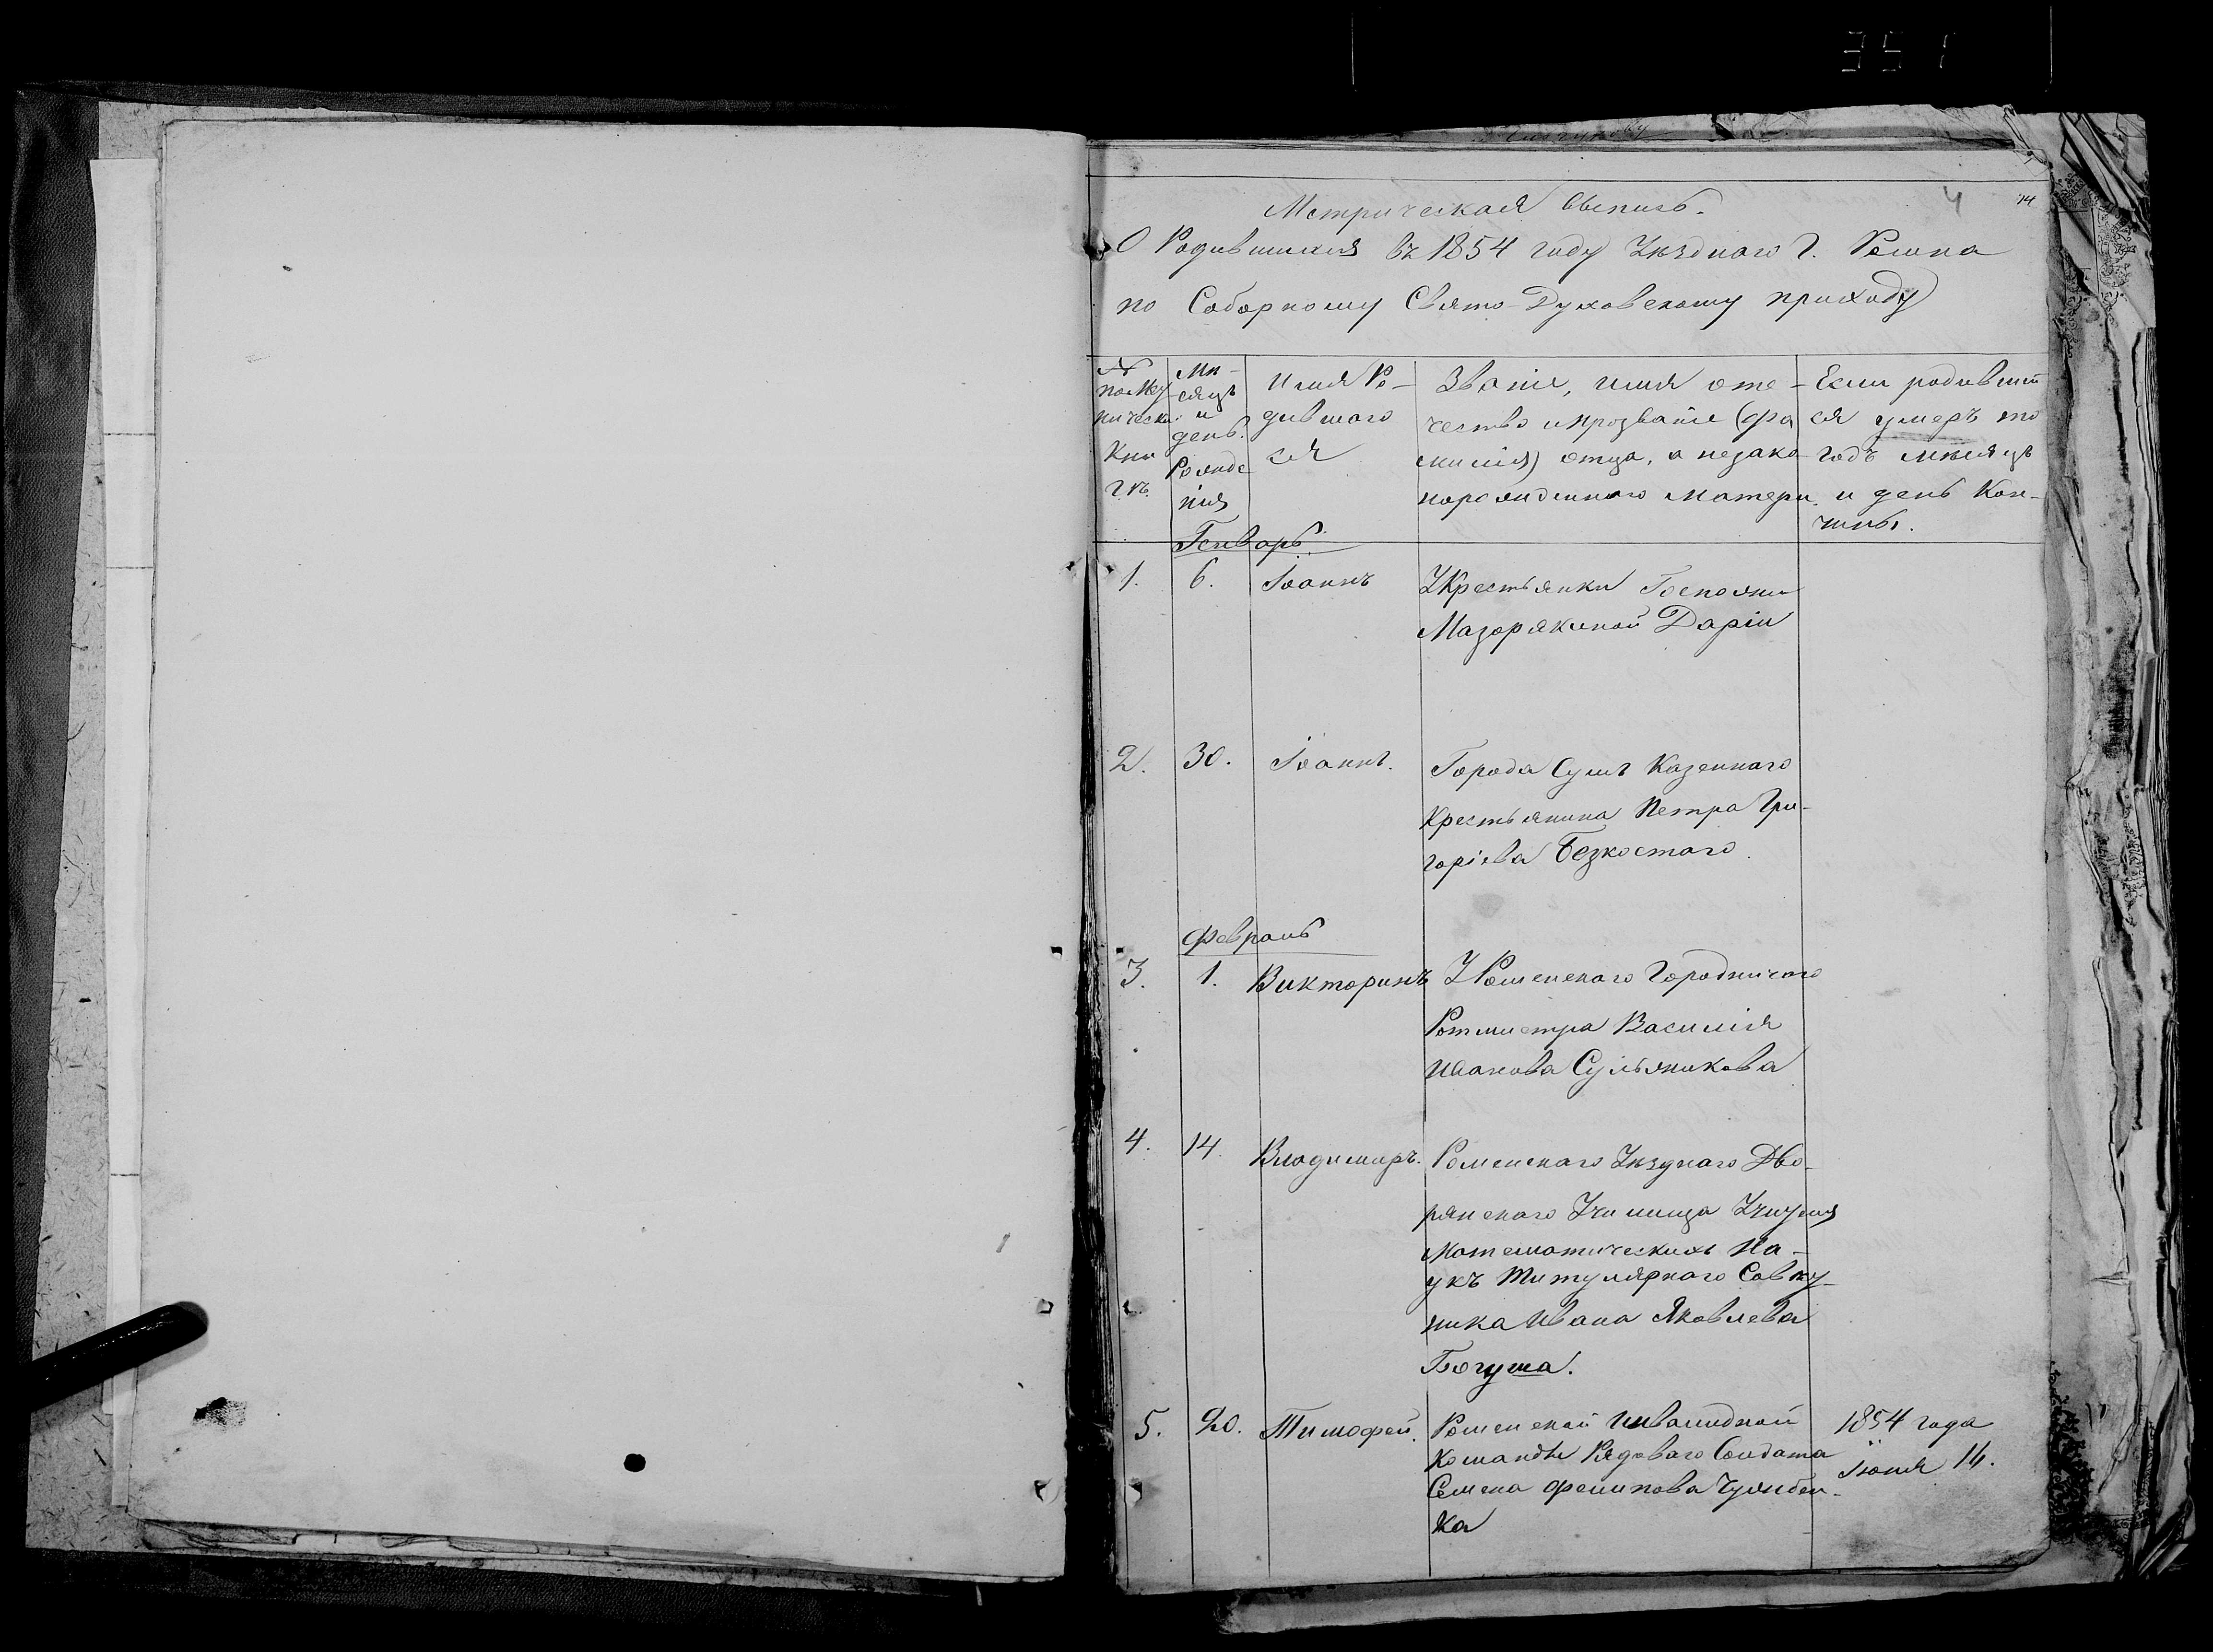 351
4 14
Метрическая Выпись.
О Родившихся въ 1854 году Уѣзднаго Г. Ромна
по Соборному Свято-Духовскому приходу
№ по Мет
рически
Кни
гѣ.
Мѣ-
сяцъ
и
день.
Рожде
нія
Имя Ро-
дившаго
ся
Званіе, имя оте-
чество и прозваніе (фа
милія) отца, а незако
норожденнаго Матери.
Если родившій
ся умеръ то
годъ мѣсяцъ
и день Кон-
чины.
Генварь
1. 6. Іоаннъ У Крестьянки Госпожи
Мазоракиной Даріи
2. 30. Іоаннъ. Города Сумъ Казеннаго
Крестьянина Петра Гри-
горіева Безкостаго
Февраль
3. 1. Викторинъ У Роменскаго Городничаго
Ротмистра Василія
Иванова Сульжикова
4. 14. Владимиръ. Роменскаго Уѣзднаго Дво-
рянскаго Училища Учителя
Математическихъ На-
укъ Титулярнаго Совѣт
ника Ивана Яковлева
Богуша.
5. 20. Тимофей. Роменской Инвалидной 1854 года
Команды Рядоваго Солдата Іюня 14.
Семена Филипова
ка